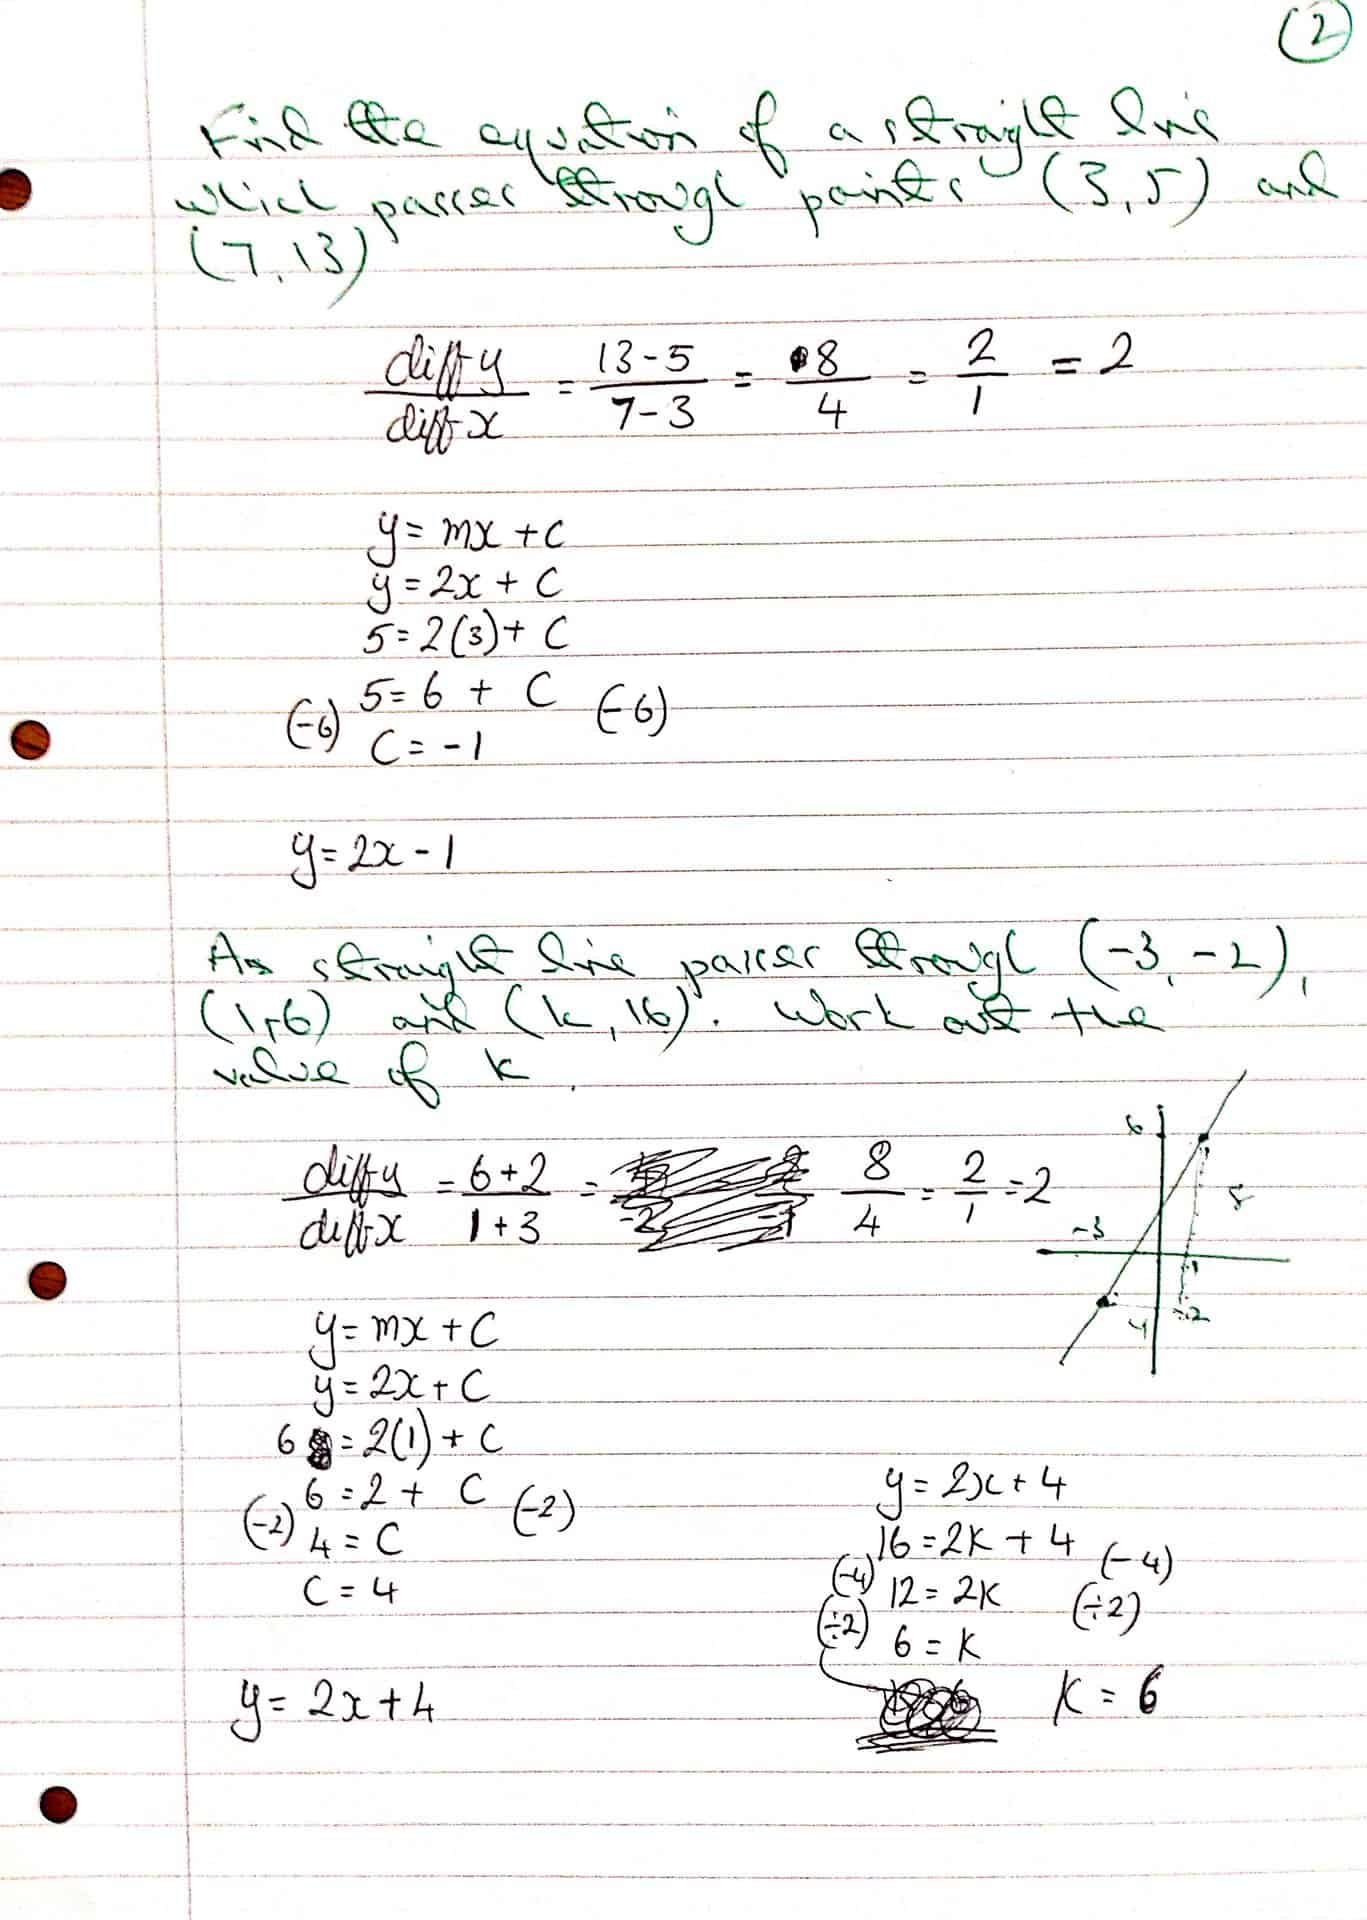 (2)
Find the equation of a straight line
which passes through points (3,5) and
(7,13)
diff y / diff x = 13-5 / 7-3 = 8/4 = 2/1 = 2
y = mx + C
y = 2x + C
5 = 2(3) + C
5 = 6 + C
(-6) (-6)
C = -1
y = 2x - 1
A straight line passes through (-3,-2),
(1,6) and (k,16). Work out the
value of k.
diff y / diff x = 6+2 / 1+3 = 8/4 = 2/1 = 2
6
-3
8
1
4
-2
y = mx + C
y = 2x + C
6 = 2(1) + C
6 = 2 + C
(-2) (-2)
4 = C
C = 4
y = 2x + 4
y = 2x + 4
16 = 2k + 4
(-4) (-4)
12 = 2k
(÷2) (÷2)
6 = k
k = 6